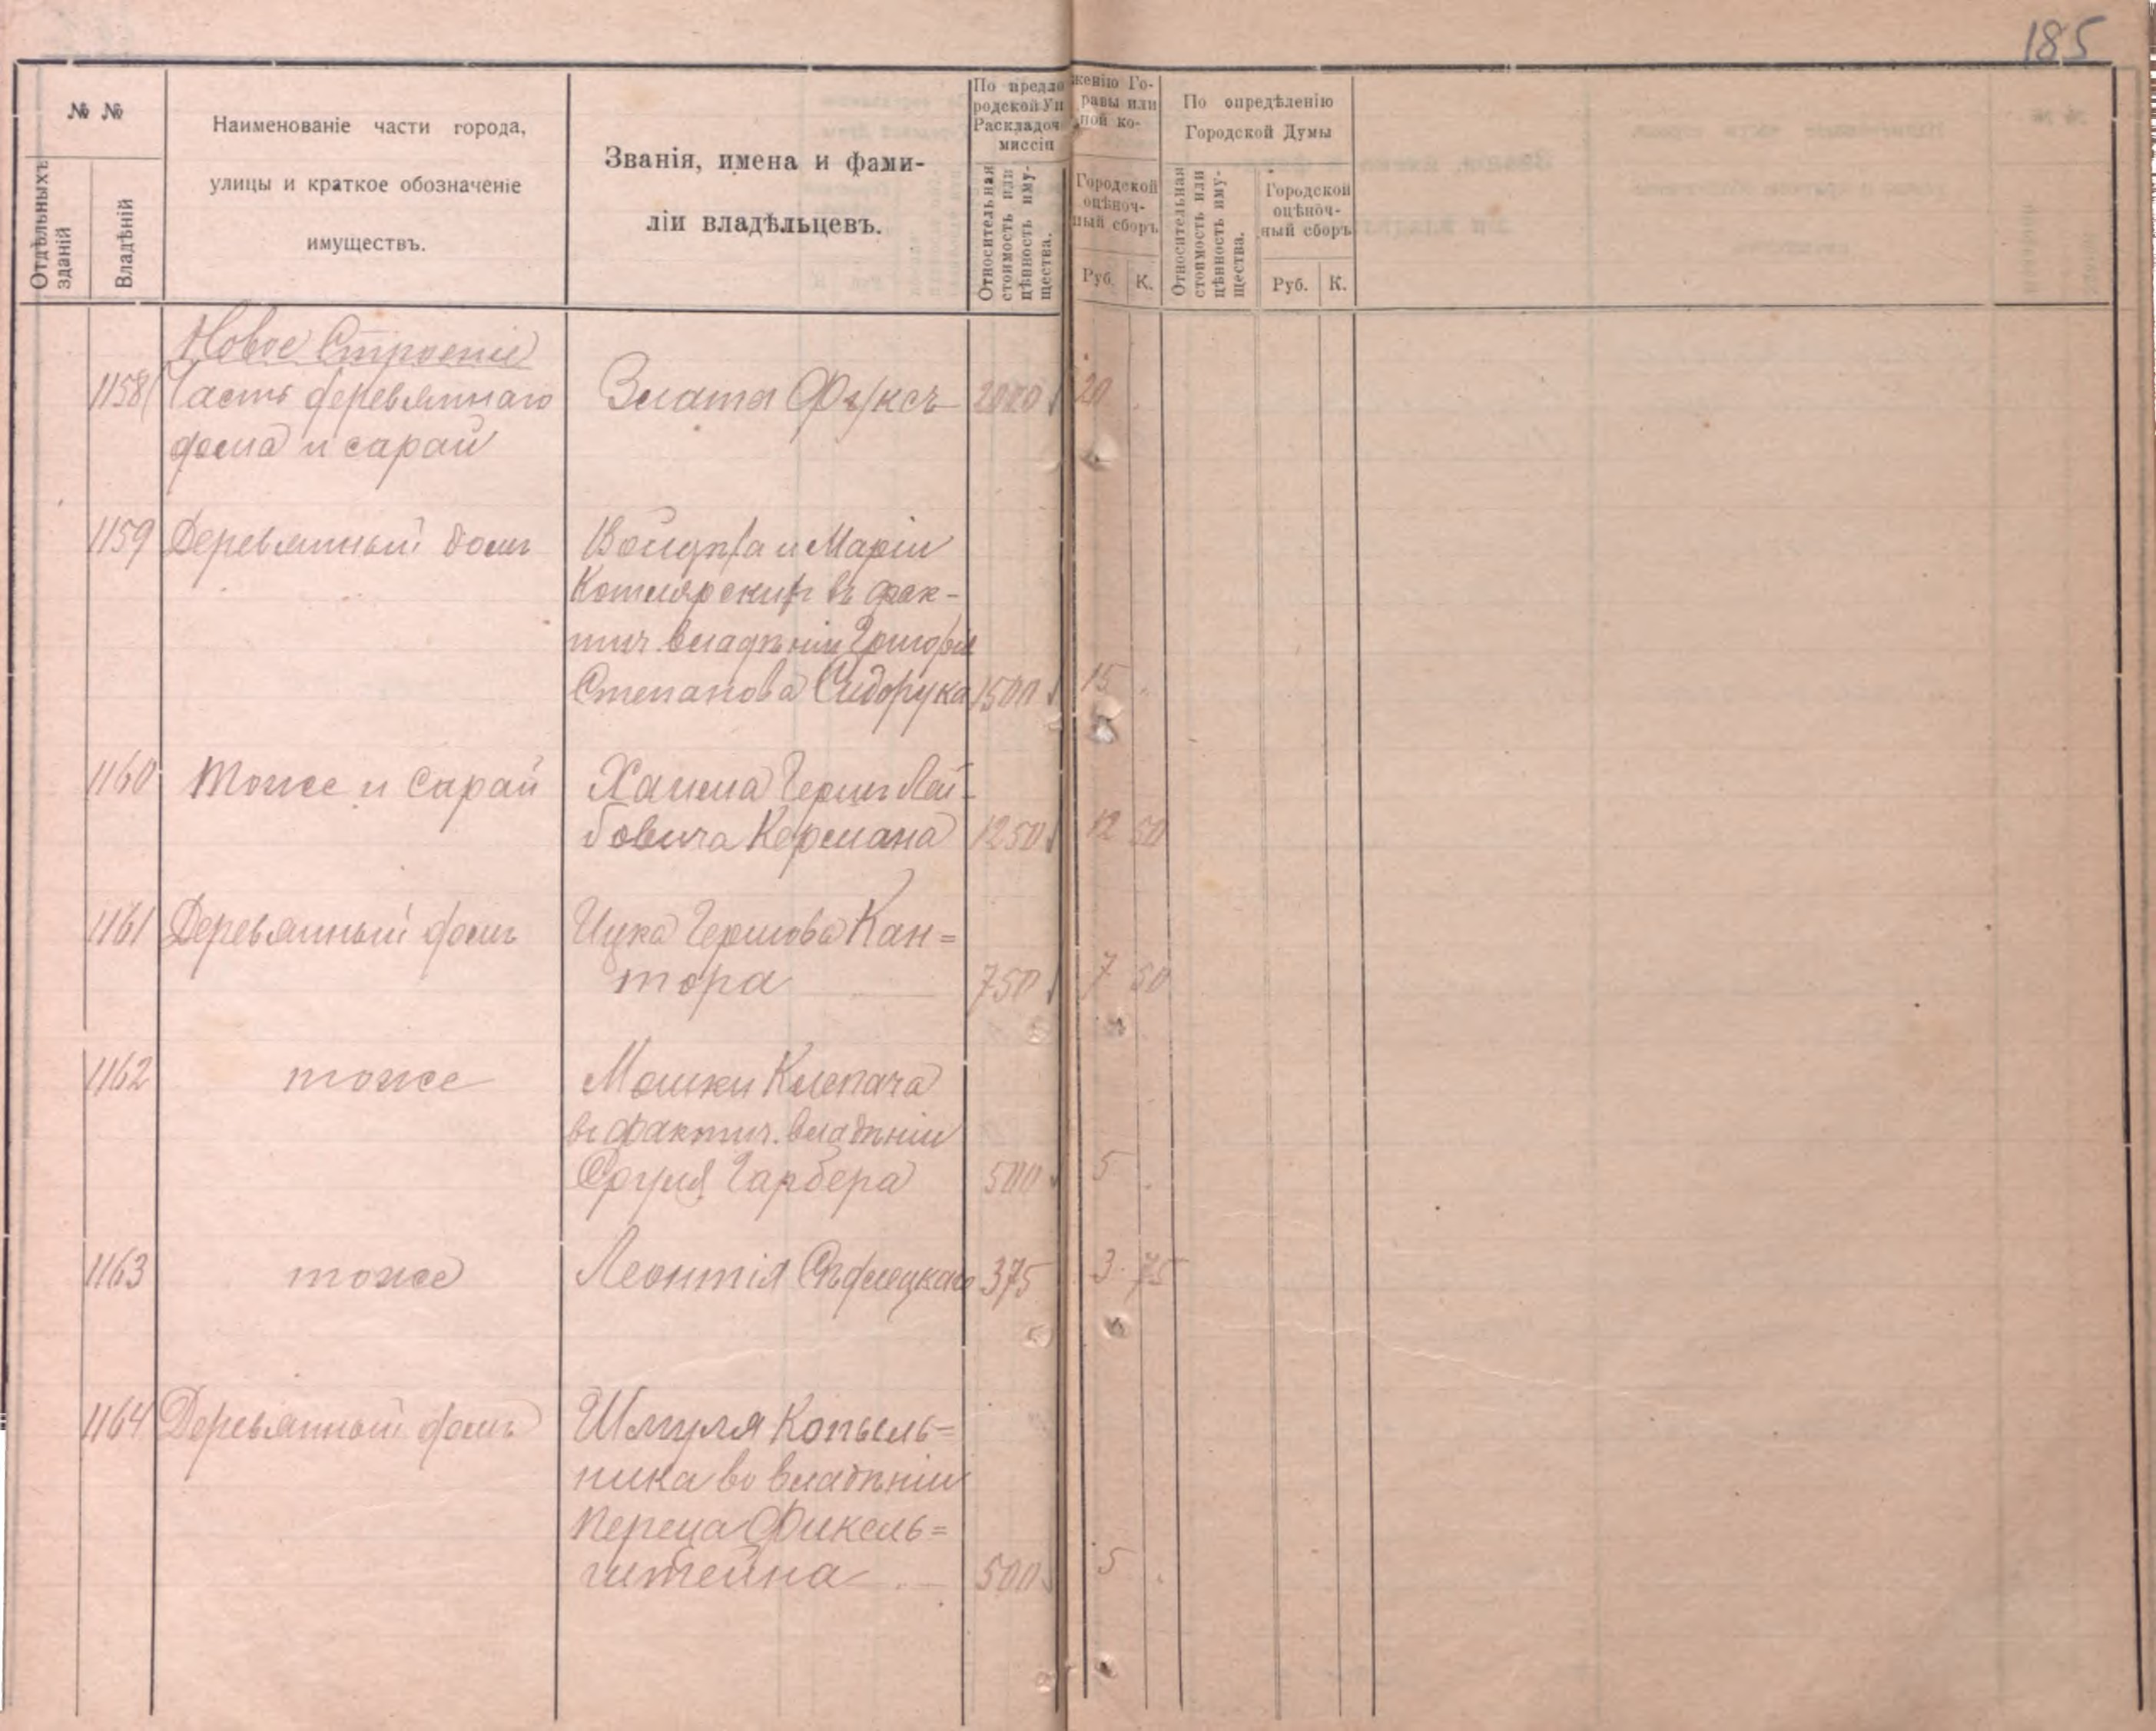 185
№ №
Отдѣльныхъ зданій
Владѣній
Наименованіе части города,
улицы и краткое обозначеніе
имуществъ.
Званія, имена и фами-
ліи владѣльцевъ.
По предложенію Го-
родской Управы или
Раскладочной ко-
миссіи
Относительная стоимость или цѣнность иму- щества.
Городской
оцѣноч-
ный сборъ
Руб. К.
По опредѣленію
Городской Думы
Относительная стоимость или цѣнность иму- щества.
Городской
оцѣноч-
ный сборъ
Руб. К.
Новое Строеніе
1158 Часть деревяннаго Злата Фуксъ 2000 20
дома и сарай
1159 Деревянный домъ и Маріи
Котлярскихъ въ фак-
тич владѣніи Григорія
Степанова Сидорука 1500 15
1160 Тоже и сарай Хаима Герш Лей-
бовича Кермана 1250 12 50
1161 Деревянный домъ Ицка Гершова Кан=
тора 750 7 50
1162 тоже Мошки Клепача
въ фактич. владѣніи
Сруля Гарбера 500 5
1163 тоже Леонтія Сѣдлецкаго 375 3 75
1164 Деревянный домъ Шмуля Копыль=
ника во владѣніи
Переца Фикель=
штейна 500 5